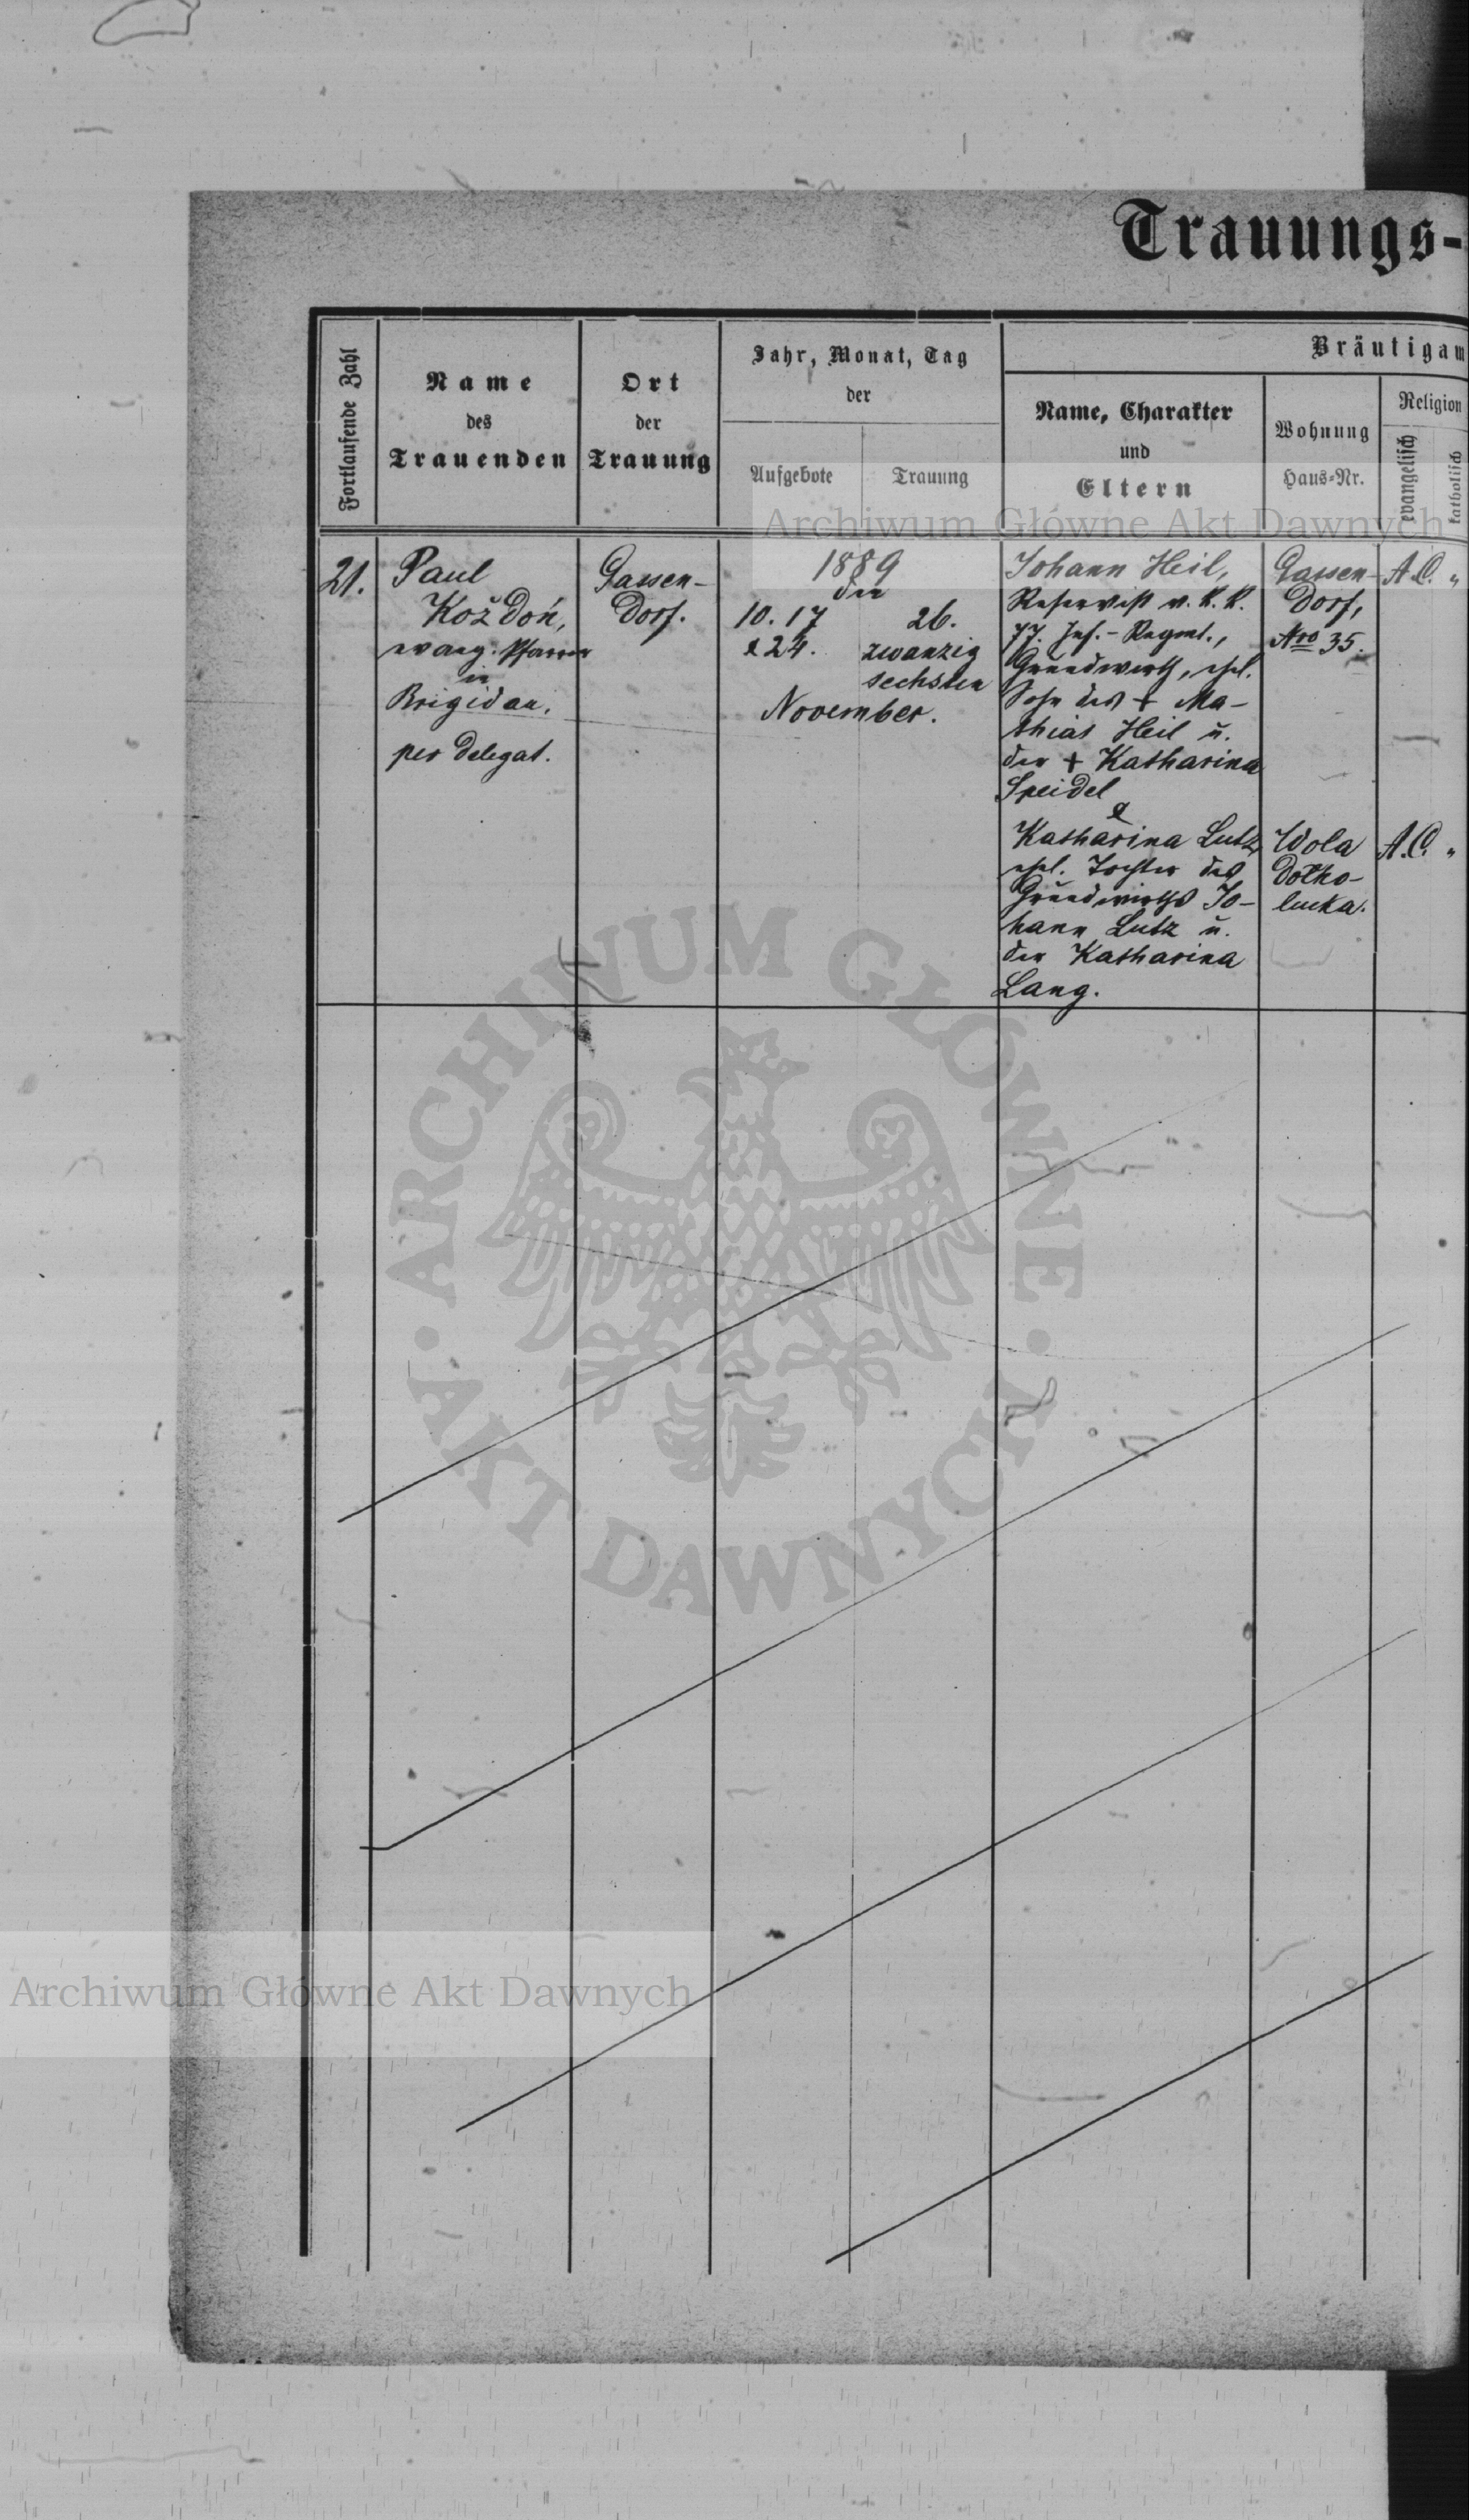 Trauungs-
Fortlaufende Zahl
Name
des
Trauenden
Ort
der
Trauung
Jahr, Monat, Tag
der
Aufgebote
Trauung
Bräutigam
Name, Charakter
und
Eltern
Wohnung
Haus-Nr.
Religion
evangelisch
katholisch
Archiwum Główne Akt Dawnych
21.
Paul
Koždoń,
evang. Pfarrer
in
Brigidau,
per delegat.
Gassen-
dorf.
1889
den
10. 17
& 24.
26.
zwanzig
sechsten
November.
Johann Heil,
Reservist d. k. k.
77. Inf.-Regmt.,
Grundwirth, ehel.
Sohn des + Ma-
thias Heil u.
der + Katharina
Speidel
&
Katharina Lutz,
ehel. Tochter des
Grundwirths Jo-
hann Lutz u.
der Katharina
Lang.
Gassen-
dorf,
Nro 35.
Wola
Dołho-
łucka.
A.C. "
A.C. "
ARCHIWUM GŁÓWNE · AKT DAWNYCH ·
Archiwum Główne Akt Dawnych